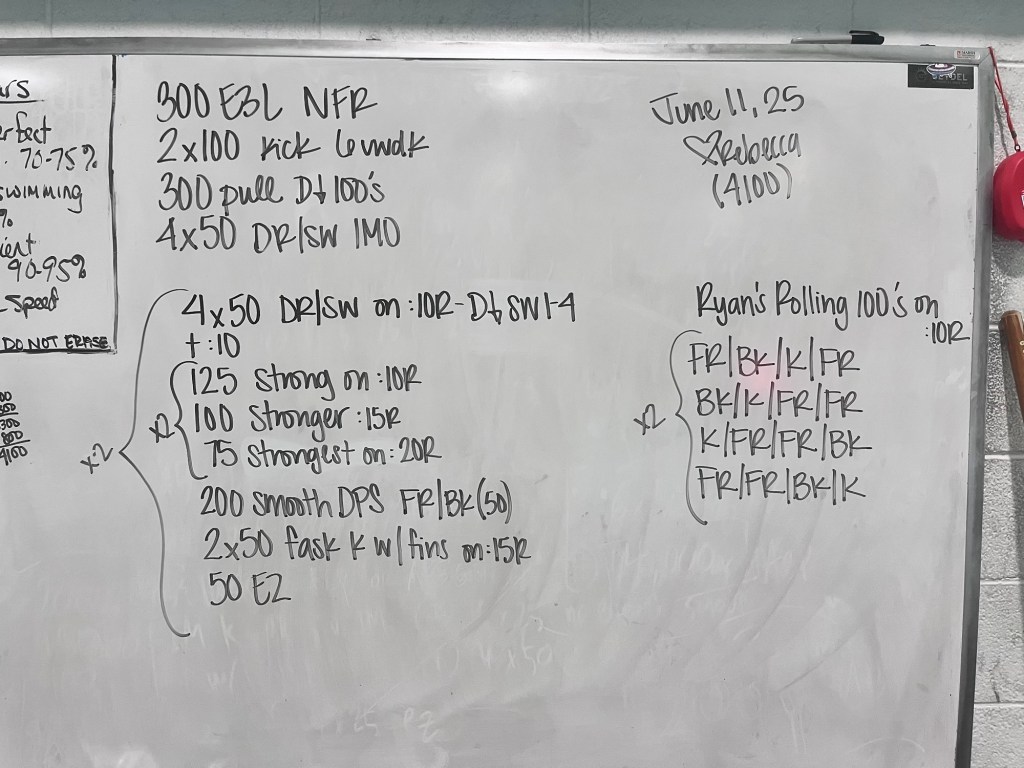 rs
rfect
70-75%
swimming
%
ient
90-95%
-Speed
DO NOT ERASE
300
800
4100
300 E3L NFR
2x100 kick 6uwdk
300 pull D↓ 100's
4x50 DR/SW IMO
x2
4x50 DR/SW on :10R-D↓ SW 1-4
+ :10
x2
125 strong on :10R
100 stronger :15R
75 strongest on :20R
200 smooth DPS FR/BK (50)
2x50 fask K w/ fins on :15R
50 EZ
June 11, 25
♡Rebecca
(4100)
Ryan's Rolling 100's on
:10R
x2
FR/BK/K/FR
BK/K/FR/FR
K/FR/FR/BK
FR/FR/BK/K